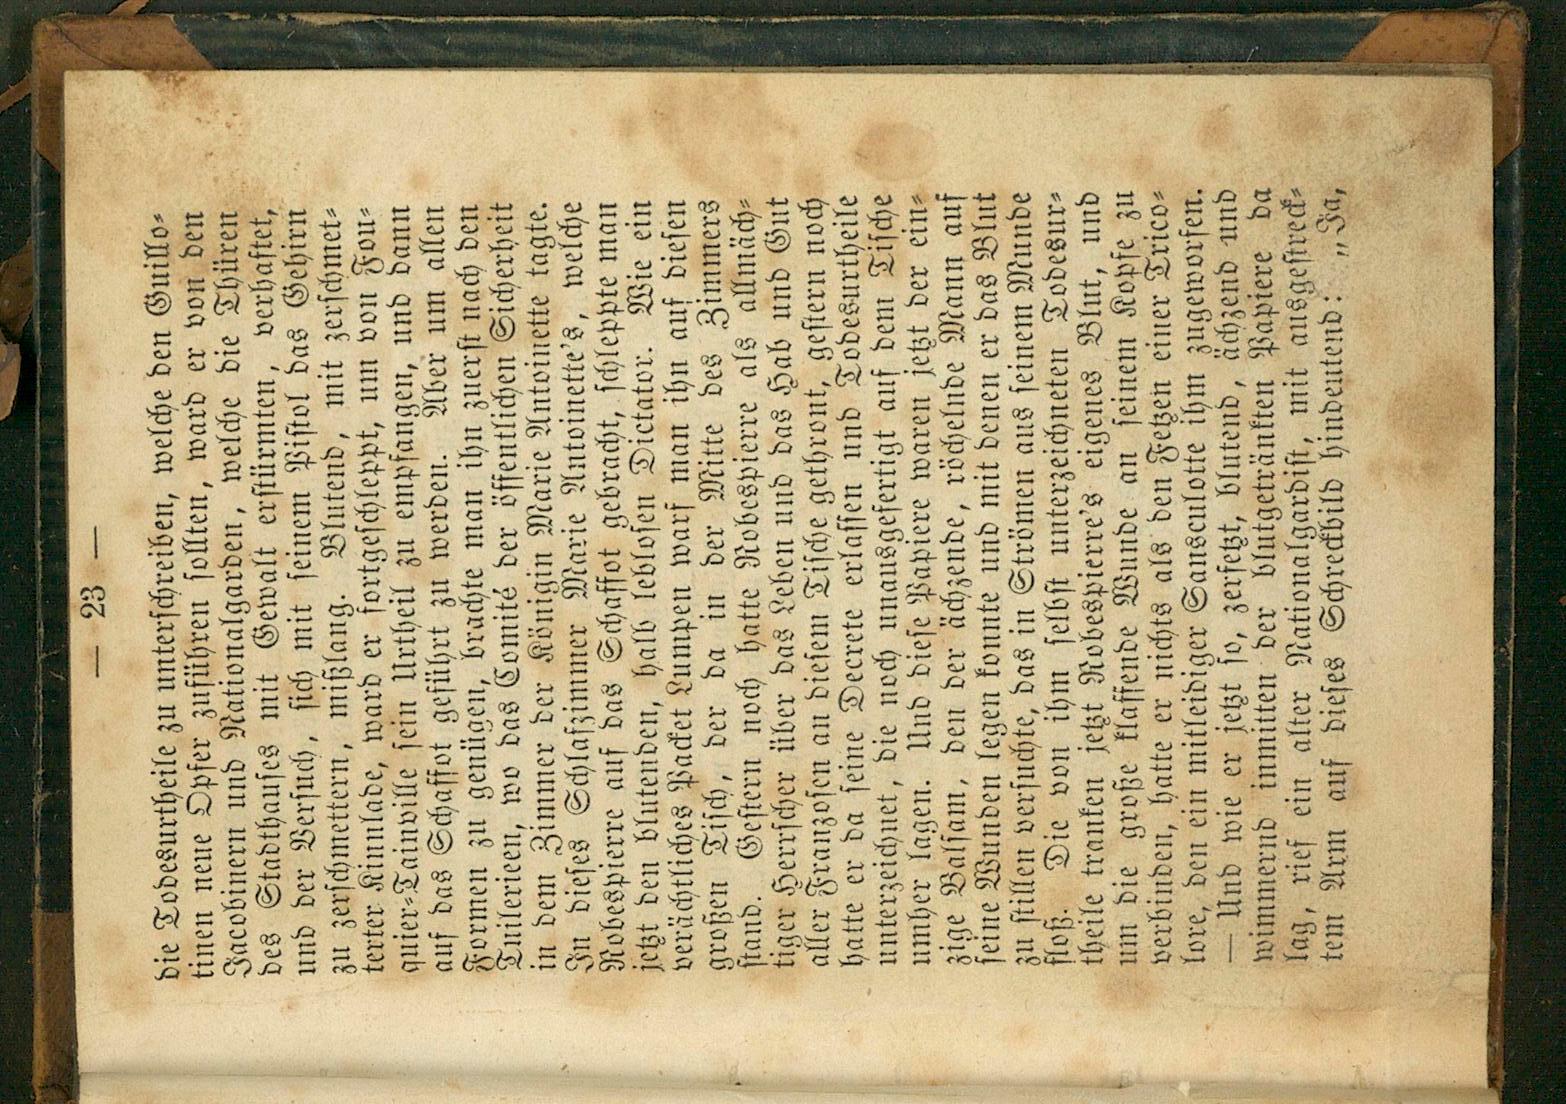 — 23 —
die Todesurtheile zu unterschreiben, welche den Guillo-
tinen neue Opfer zuführen sollten, ward er von den
Jacobinern und Nationalgarden, welche die Thüren
des Stadthauses mit Gewalt erstürmten, verhaftet,
und der Versuch, sich mit seinem Pistol das Gehirn
zu zerschmettern, mißlang. Blutend, mit zerschmet-
terter Kinnlade, ward er fortgeschleppt, um von Fou-
quier-Tainville sein Urtheil zu empfangen, und dann
auf das Schaffot geführt zu werden. Aber um allen
Formen zu genügen, brachte man ihn zuerst nach den
Tuilerieen, wo das Comité der öffentlichen Sicherheit
in dem Zimmer der Königin Marie Antoinette tagte.
In dieses Schlafzimmer Marie Antoinette's, welche
Robespierre auf das Schaffot gebracht, schleppte man
jetzt den blutenden, halb leblosen Dictator. Wie ein
verächtliches Packet Lumpen warf man ihn auf diesen
großen Tisch, der da in der Mitte des Zimmers
stand. Gestern noch hatte Robespierre als allmäch-
tiger Herrscher über das Leben und das Hab und Gut
aller Franzosen an diesem Tische gethront, gestern noch
hatte er da seine Decrete erlassen und Todesurtheile
unterzeichnet, die noch unausgefertigt auf dem Tische
umher lagen. Und diese Papiere waren jetzt der ein-
zige Balsam, den der ächzende, röchelnde Mann auf
seine Wunden legen konnte und mit denen er das Blut
zu stillen versuchte, das in Strömen aus seinem Munde
floß. Die von ihm selbst unterzeichneten Todesur-
theile tranken jetzt Robespierre's eigenes Blut, und
um die große klaffende Wunde an seinem Kopfe zu
verbinden, hatte er nichts als den Fetzen einer Trico-
lore, den ein mitleidiger Sansculotte ihm zugeworfen.
— Und wie er jetzt so, zerfetzt, blutend, ächzend und
wimmernd inmitten der blutgetränkten Papiere da
lag, rief ein alter Nationalgardist, mit ausgestreck-
tem Arm auf dieses Schreckbild hindeutend: „Ja,